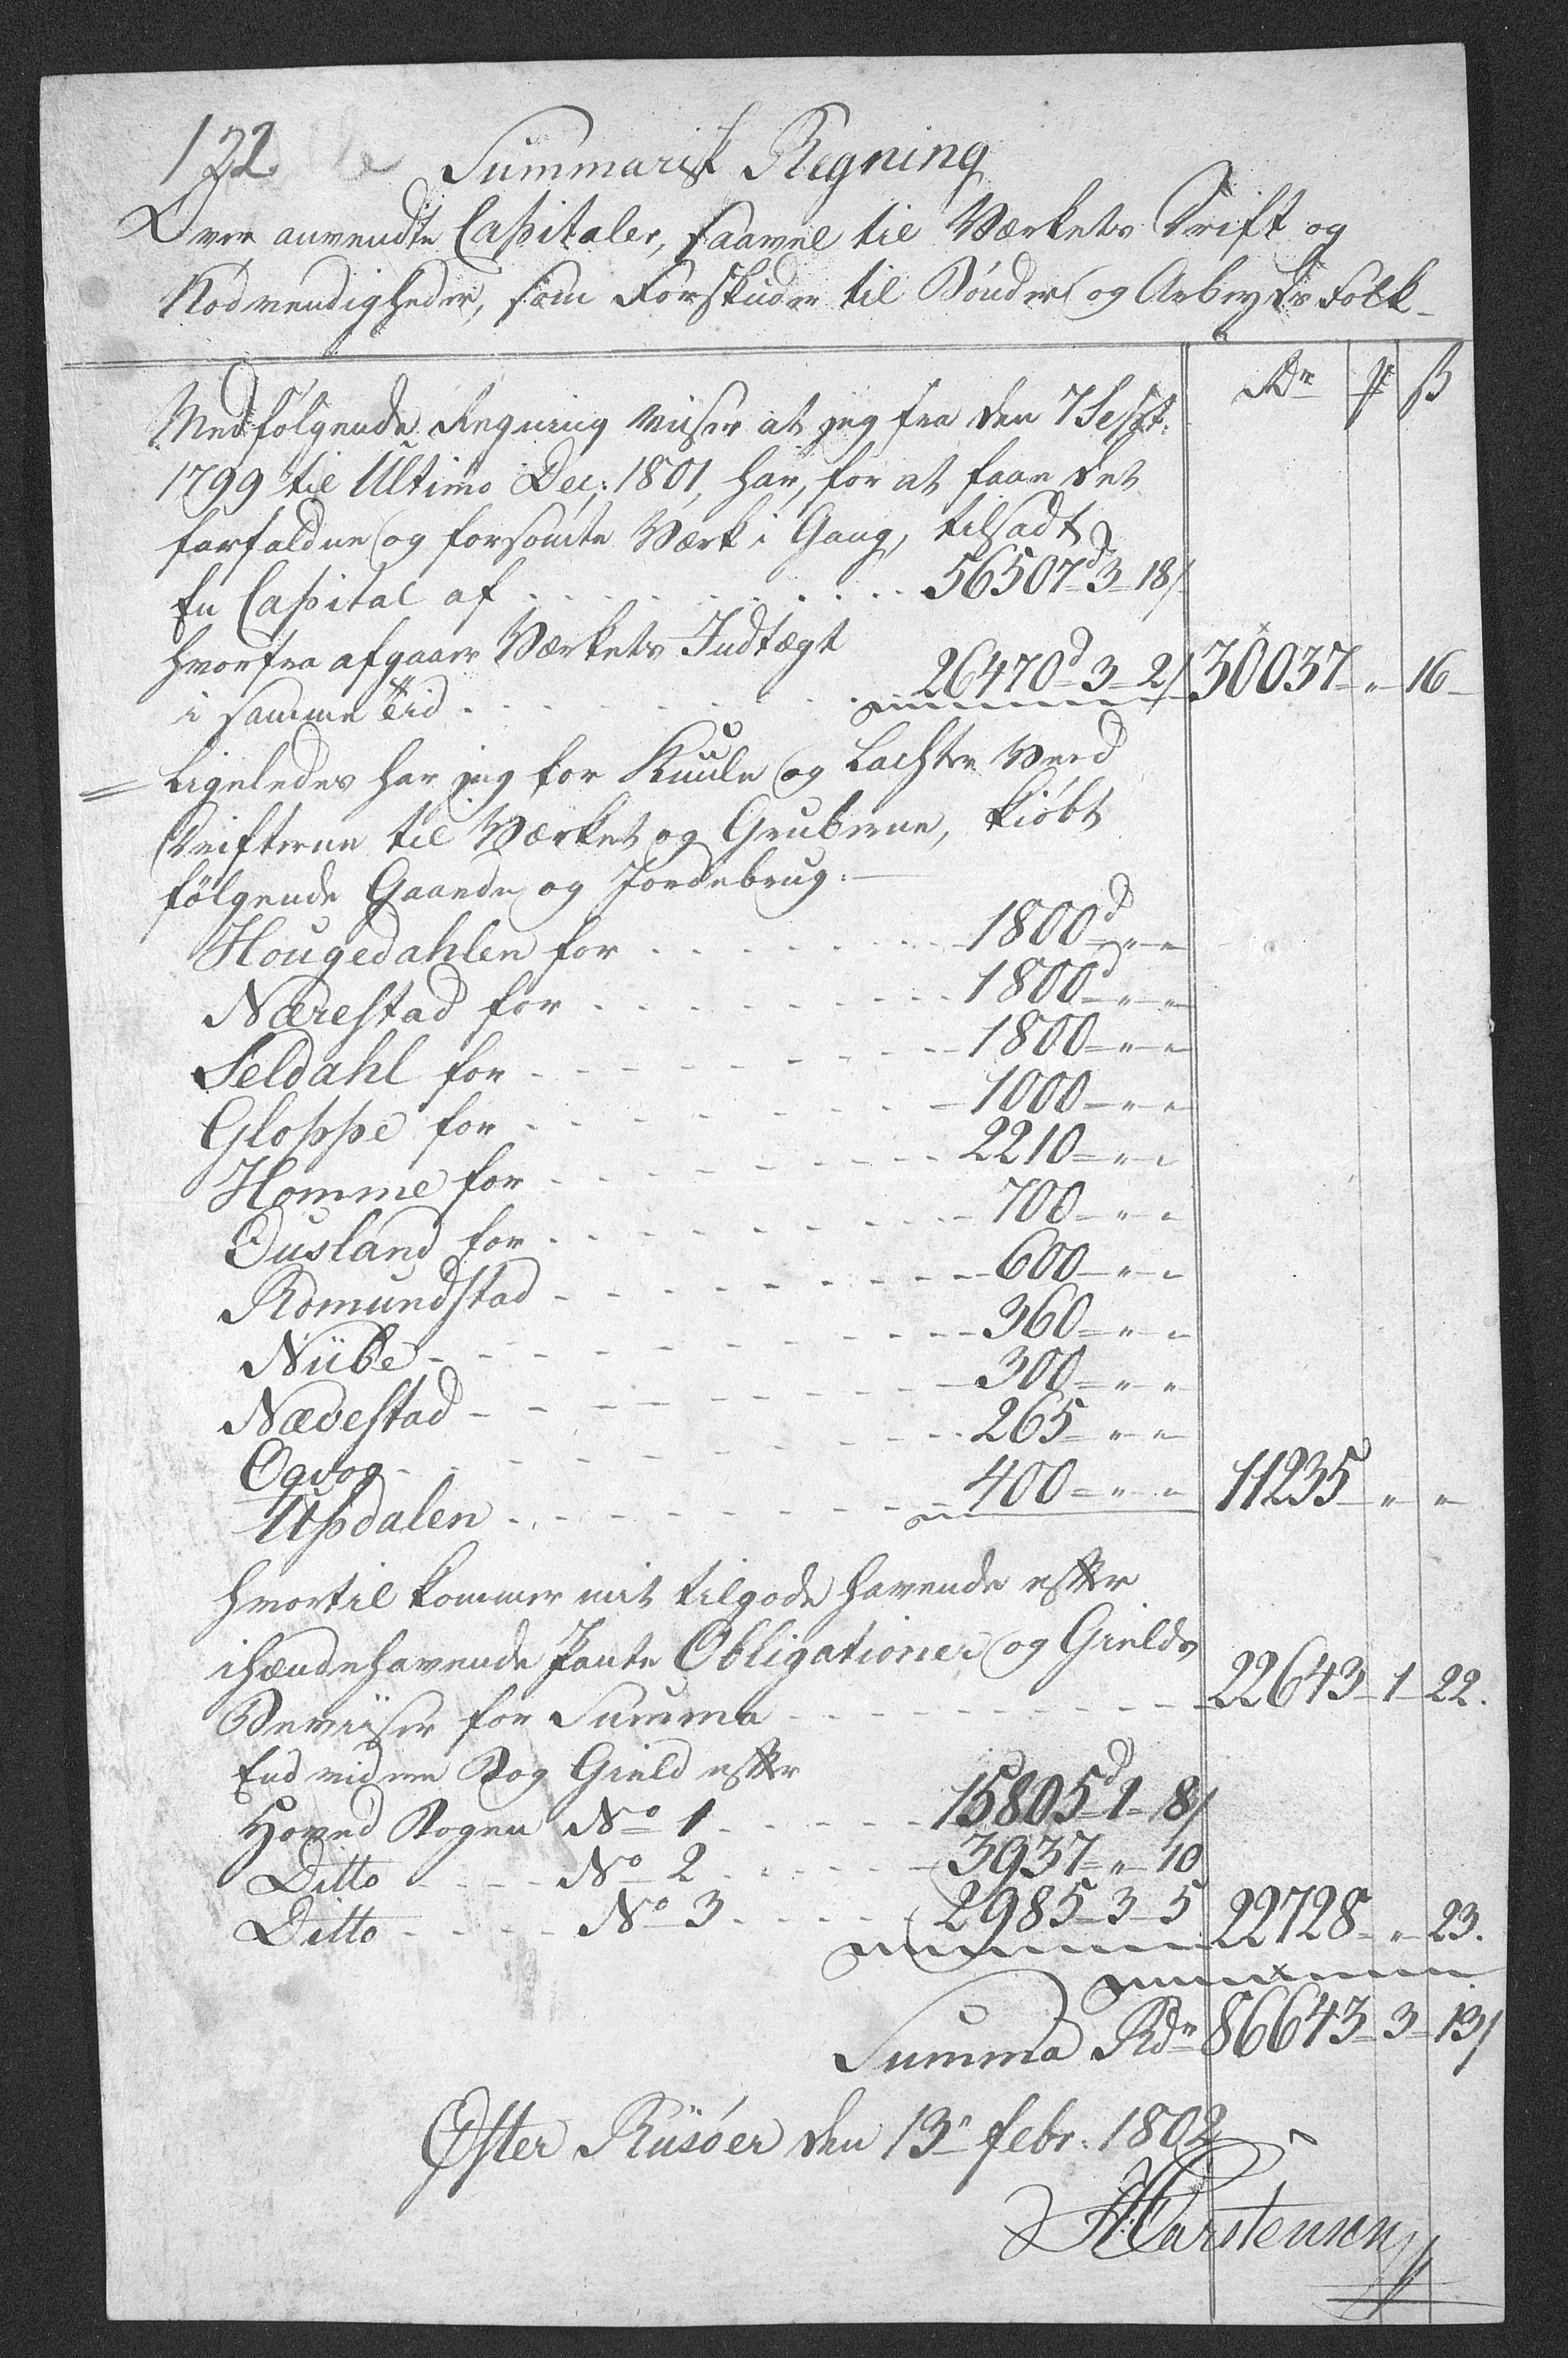 122.
Summarisk Regning
Over anvendte Capitaler, saavel til Værkets Drift og
Nødvendigheder, som Forskuder til Bønder og Arbeyds Folk
Rdr ß
Medfølgende Regning viiser at jeg fra den 7 Sept.
1799 til Ultimo Dec: 1801, har, for at faae det
forfaldne og forsømte Værk i Gang, tilsadt
En Capital af . . . . . . . . . . 56507d 3 - 18/
hvorfra afgaaer Værkets Indtægt
i samme Tid . . . . . . . . 26470d 3 - 2/ 30037 - " - 16 -
= Ligeledes har jeg for Kuule og Lachter Veed
Drifterne til Værket og Gruberne, kiøbt
følgende Gaarde og Jordebrug: -
Hougedahlen for . . . . . . . . 1800d - " - "
Nærestad for . . . . . . . . . 1800d - " - "
Seldahl for - - - - - - - 1800 - " - "
Gloppe for - - - - - - - 1000 - " - "
Homme for - - - - - - - 2210 - " - "
Ousland for - - - - - - - 700 - " - "
Romundstad - - - - - - - 600 - " - "
Nübe - - - - - - - 360 - " - "
Nævestad - - - - - - - 300 - " - "
Ogvog - - - - - - - 265 - " - "
Updalen - - - - - - - 400 - " - " 11235 - " - "
hvortil kommer mit tilgode havende efter
ihændehavende Pante Obligationer og Gields
Beviiser for Summa - - - - - - - 22643 - 1 - 22.
End videre Bog Gield efter
Hoved Bogen No 1 - - - - - 15805d 1 - 8/
Ditto - - - - No 2 - - - - - 3937 - " - 10
Ditto - - - - No 3 - - - - - 2985 - 3 - 5 22728 - " - 23.
Summa Rdr 86643 - 3 - 13/
Øster Riisøer den 13n febr. 1802
H Carstensen